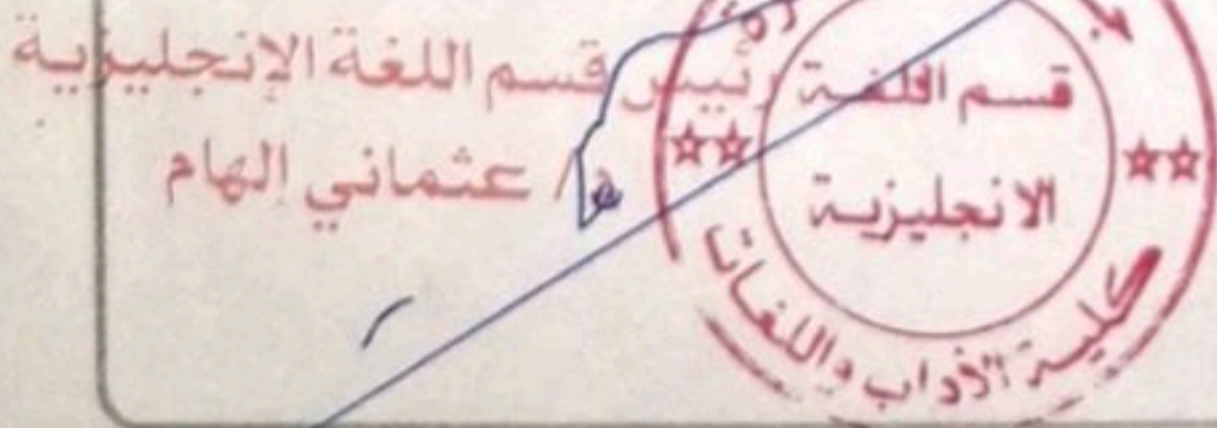 رئيس قسم اللغة الإنجليزية
د/ عثماني إلهام
قسم اللغة
الانجليزية
كلية الآداب واللغات